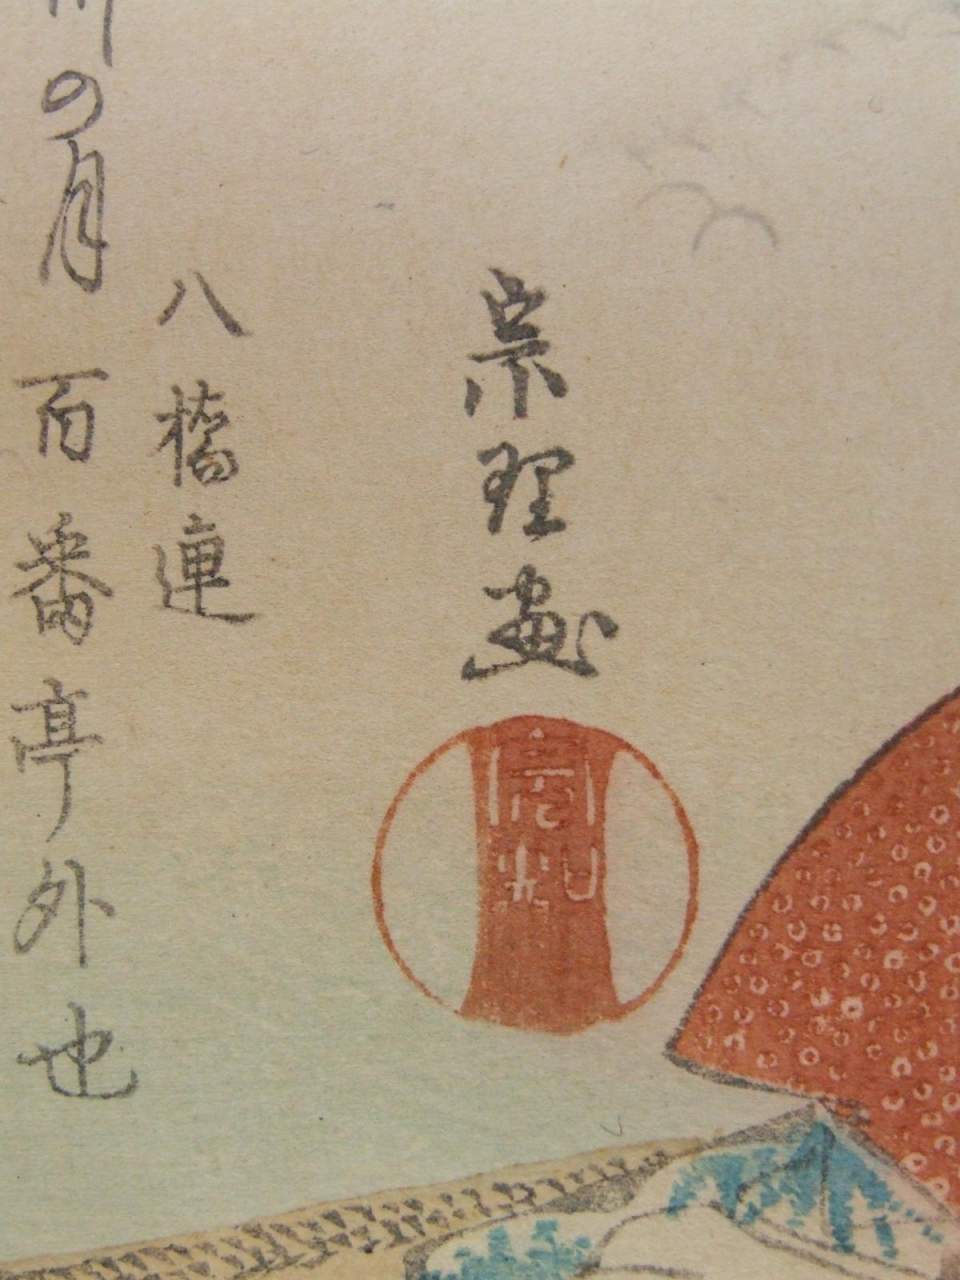 宗理画
八橋連
川の月 百番亭外也